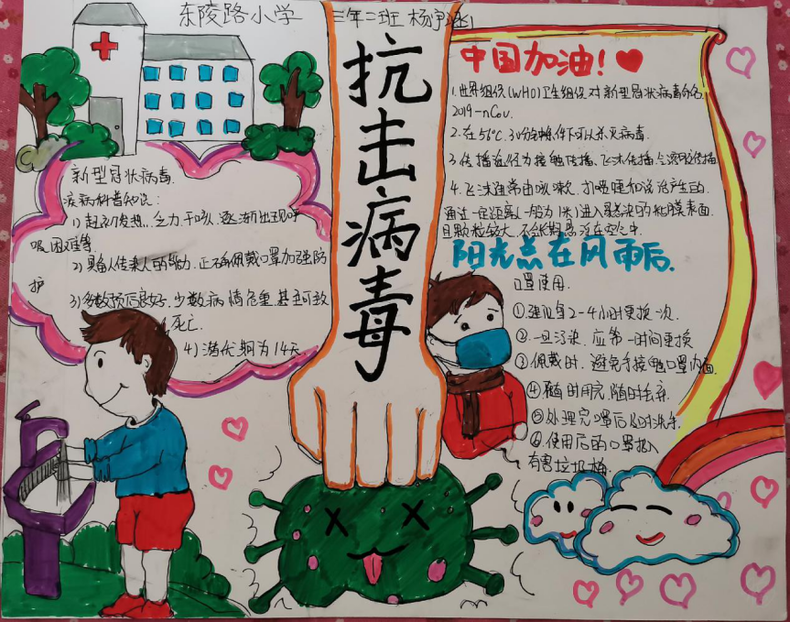 东陵路小学 三年二班 杨
抗击病毒
新型冠状病毒
疾病科普知识:
1)起初发热、乏力、干咳、逐渐出现呼
吸困难等
2)具备人传人的能力,正确佩戴口罩加强防
护
3)多数预后良好,少数病情危重,甚至可致
死亡.
4)潜伏期为14天
中国加油!
1.世界组织(WHO)卫生组织对新型冠状病毒命名
2019-nCoV.
2.在56℃.30分钟条件下可以杀灭病毒.
3.传播途径为接触传播、飞沫传播、气溶胶传播
4.飞沫通常由咳嗽、打喷嚏和说话产生的
通过一定距离(一般为1米)进入易感染的粘膜表面.
且颗粒较大,不会长期悬浮在空气中.
阳光总在风雨后.
口罩使用.
①建议每2-4小时更换一次.
②一旦污染,应第一时间更换
③佩戴时,避免手接触口罩内面.
④随时用完,随时丢弃.
⑤处理完口罩后及时洗手.
⑥使用后的口罩投入
有害垃圾桶.